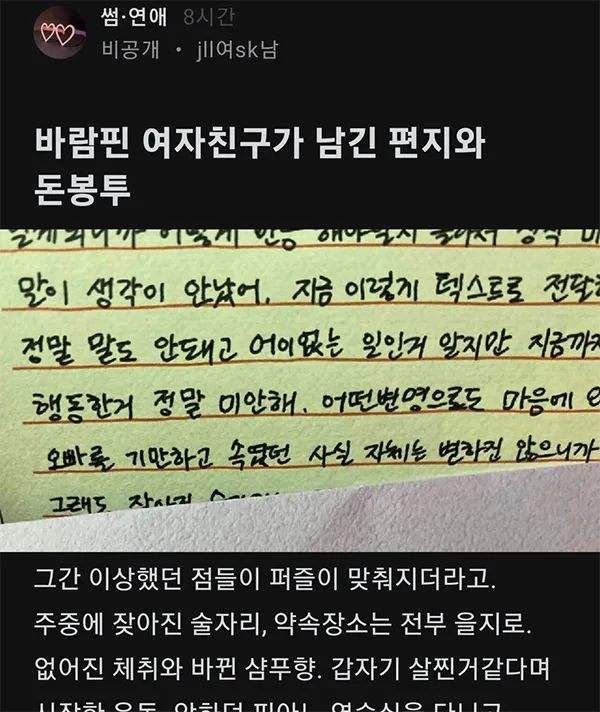 썸·연애 8시간
비공개 · jll여sk남
바람핀 여자친구가 남긴 편지와
돈봉투
말이 생각이 안났어. 지금 이렇게 텍스트로 전달
정말 말도 안돼고 어이없는 일인거 알지만 지금까지
행동한거 정말 미안해. 어떤변명으로도 마음에
오빠를 기만하고 속였던 사실 자체는 변하진 않으니까
그래도
그간 이상했던 점들이 퍼즐이 맞춰지더라고.
주중에 잦아진 술자리, 약속장소는 전부 을지로.
없어진 체취와 바뀐 샴푸향. 갑자기 살찐거같다며
시작한 운동, 안하던 피아노 연습실을 다니고